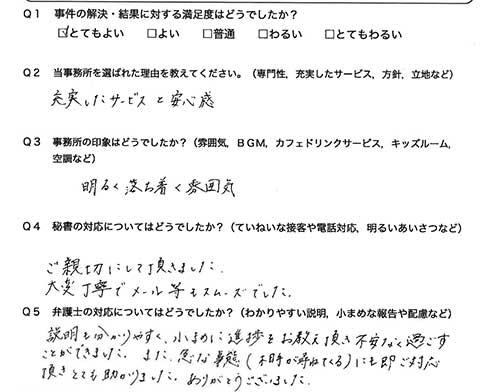 Q1 事件の解決・結果に対する満足度はどうでしたか？
☑とてもよい □よい □普通 □わるい □とてもわるい
Q2 当事務所を選ばれた理由を教えてください。（専門性，充実したサービス，方針，立地など）
充実したサービスと安心感
Q3 事務所の印象はどうでしたか？（雰囲気，ＢＧＭ，カフェドリンクサービス，キッズルーム，
空調など）
明るく落ち着く雰囲気
Q4 秘書の対応についてはどうでしたか？（ていねいな接客や電話対応，明るいあいさつなど）
ご親切にして頂きました。
大変丁寧でメール等もスムーズでした。
Q5 弁護士の対応についてはどうでしたか？（わかりやすい説明，小まめな報告や配慮など）
説明も分かりやすく、小まめに進捗をお教え頂き不安なく過ごす
ことができました。また、急な事態（相手が尋ねてくる）にも即ご対応
頂きとても助かりました。ありがとうございました。